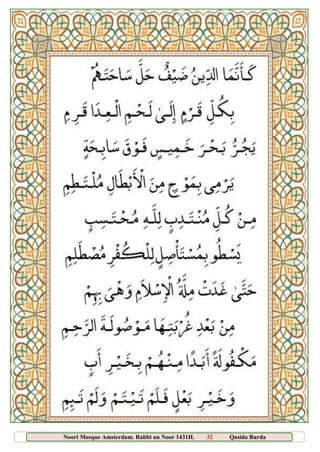 كَأَنَّمَا الدِّينُ ضَيْفٌ حَلَّ سَاحَتَهُمْ
بِكُلِّ قَرْمٍ إِلَى لَحْمِ الْعِدَا قَرِمِ
يَجُرُّ بَحْرَ خَمِيسٍ فَوْقَ سَابِحَةٍ
يَرْمِي بِمَوْجٍ مِنَ الْأَبْطَالِ مُلْتَطِمِ
مِنْ كُلِّ مُنْتَدِبٍ لِلَّهِ مُحْتَسِبٍ
يَسْطُو بِمُسْتَأْصِلٍ لِلْكُفْرِ مُصْطَلِمِ
حَتَّى غَدَتْ مِلَّةُ الْإِسْلَامِ وَهْيَ بِهِمْ
مِنْ بَعْدِ غُرْبَتِهَا مَوْصُولَةَ الرَّحِمِ
مَكْفُولَةً أَبَدًا مِنْهُمْ بِخَيْرِ أَبٍ
وَخَيْرِ بَعْلٍ فَلَمْ تَيْتَمْ وَلَمْ تَئِمِ
Noori Mosque Amsterdam. Rabbi un Noor 1431H. 32 Qasida Burda